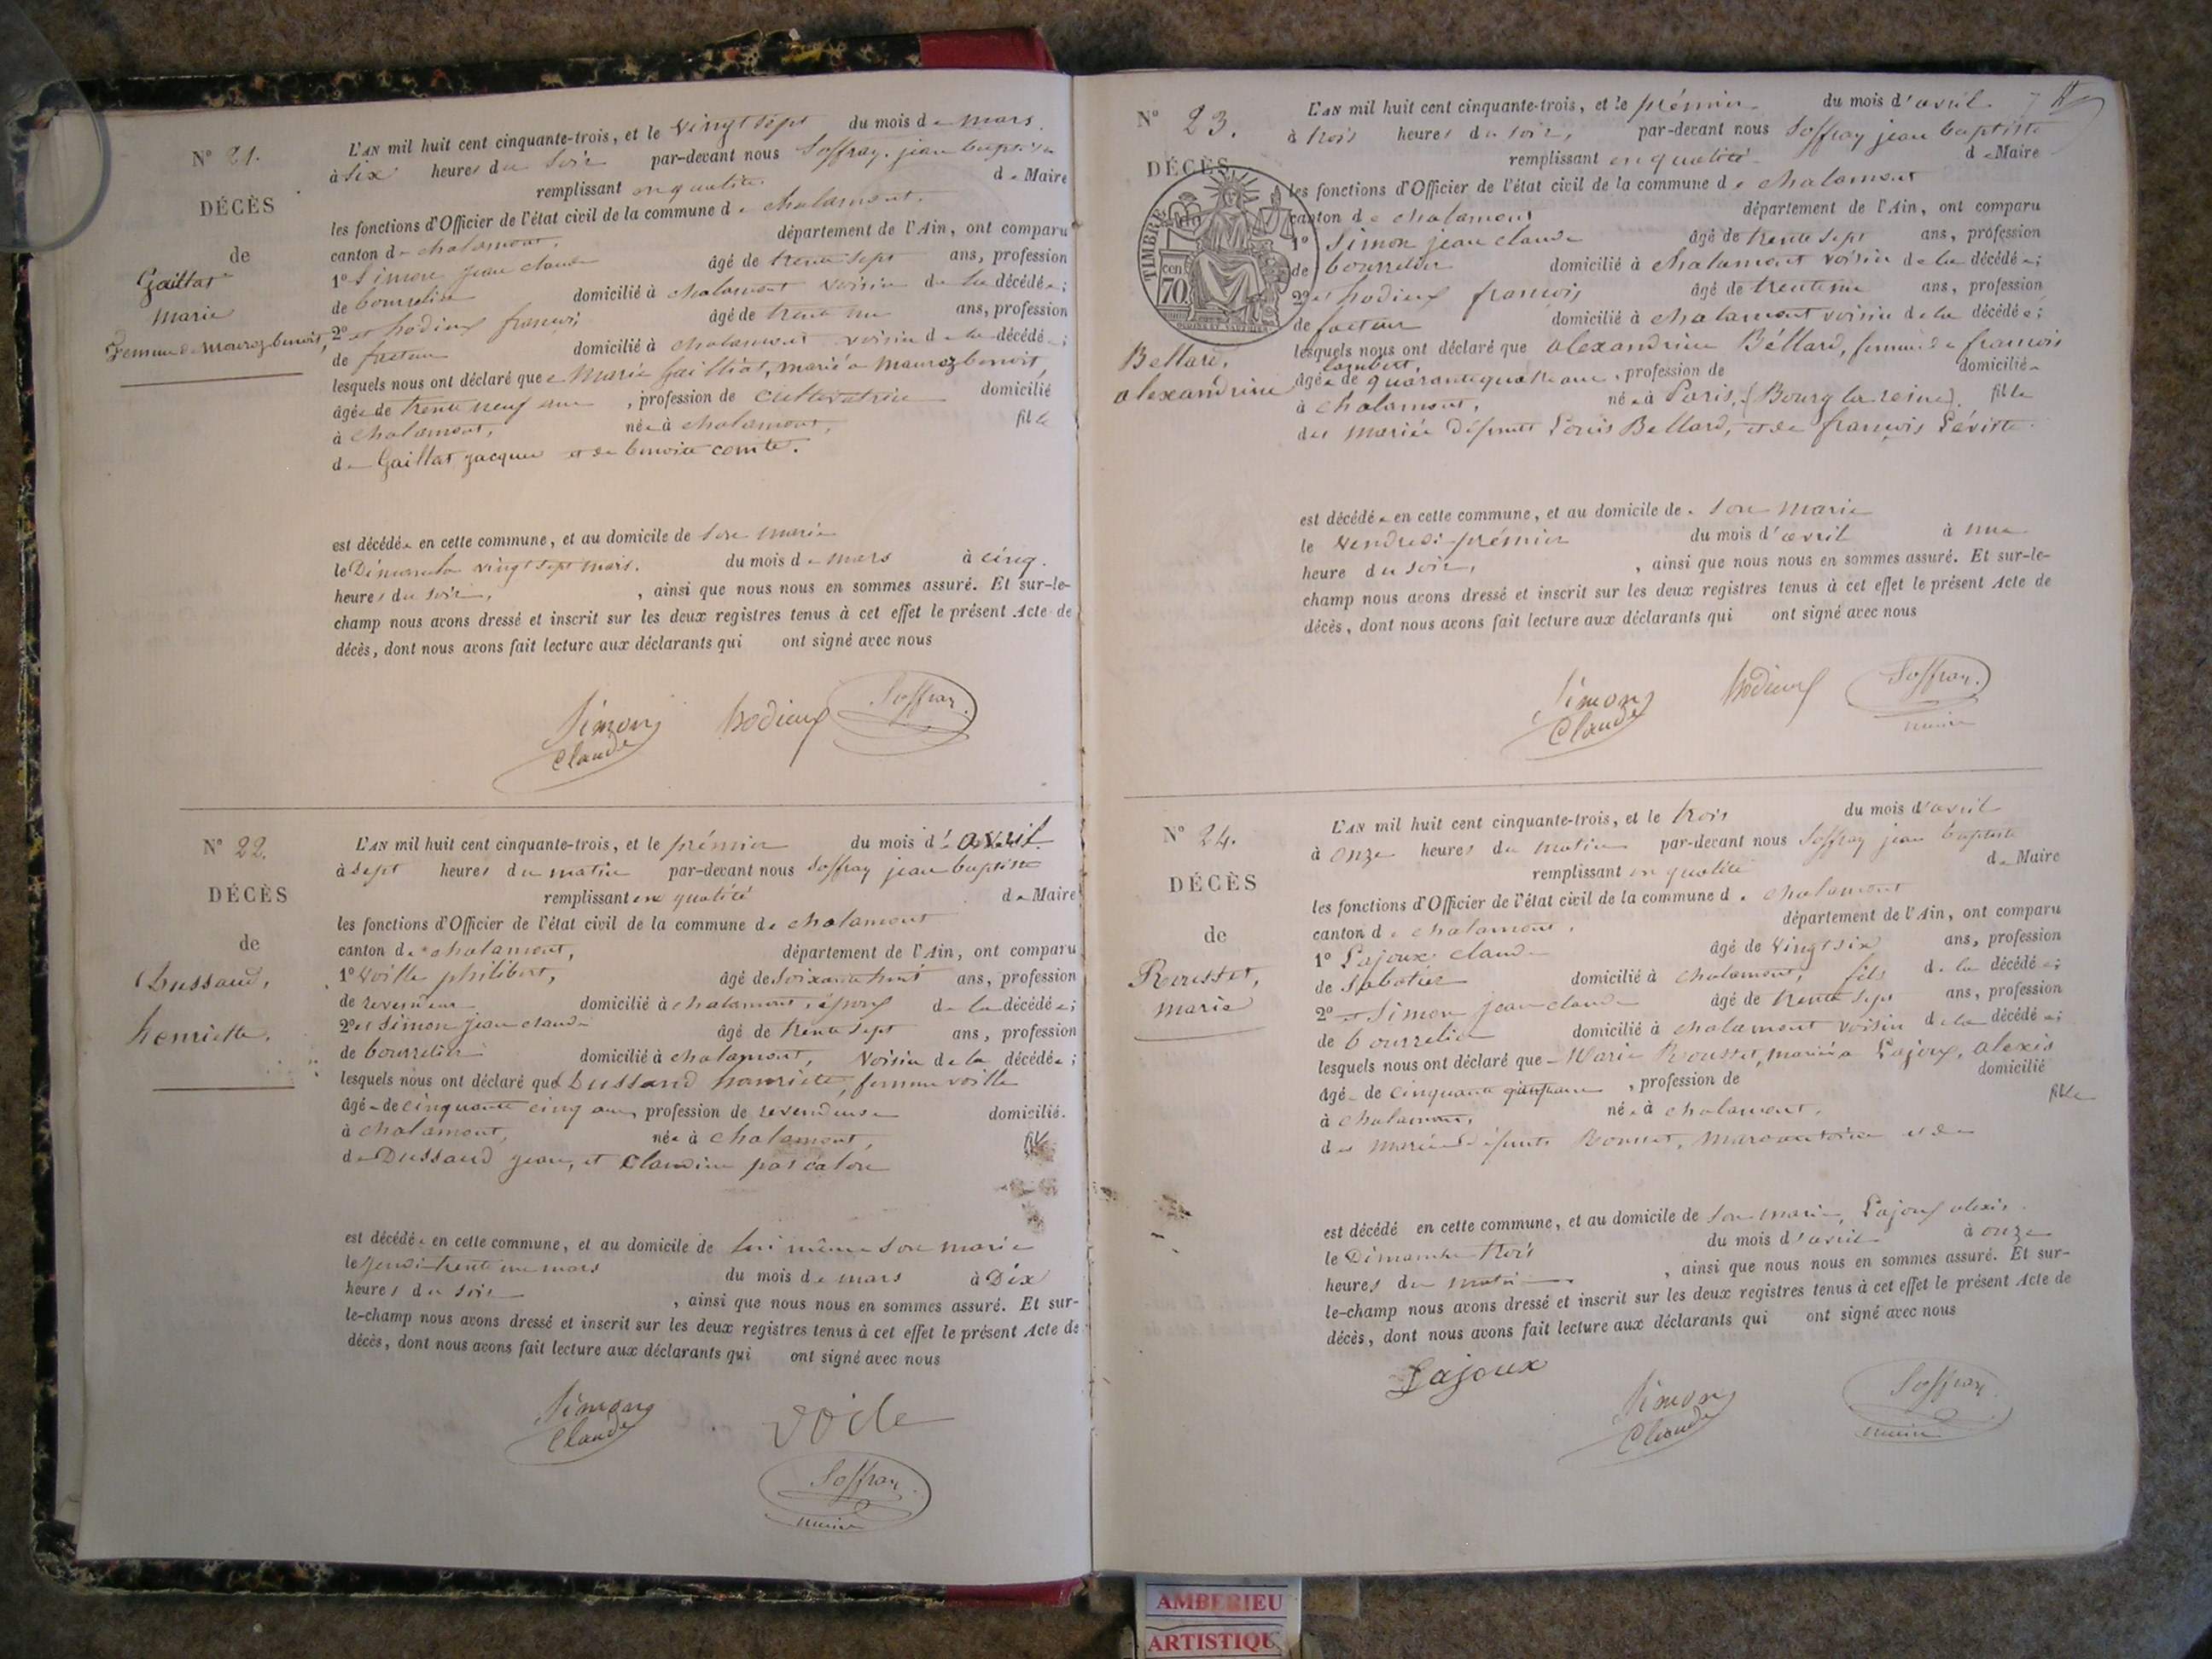 N° 21.
DÉCÈS
de
Gaillat
Marie
femme de Mauroz benoit,
L'AN mil huit cent cinquante-trois, et le vingt sept du mois de mars.
à six heures du soir par-devant nous Soffray jean baptiste
remplissant en qualité de Maire
les fonctions d'Officier de l'état civil de la commune de chalamont.
canton de chalamont, département de l'Ain, ont comparu
1° Simon jean claude âgé de trente sept ans, profession
de bourrelier domicilié à chalamont voisin de la décédée;
2° et hodieux francois âgé de trente un ans, profession
de facteur domicilié à chalamont voisin de la décédée;
lesquels nous ont déclaré que Marie Gailliat, marié a Mauroz benoit,
âgée de trente neuf ans, profession de cultivatrice domicilié
à chalamont, née à chalamont, fille
de Gaillat jacques et de benoite comte.
est décédée en cette commune, et au domicile de son marie
le Dimanche vingt sept mars. du mois de mars à cinq.
heures du soir, , ainsi que nous nous en sommes assuré. Et sur-le-
champ nous avons dressé et inscrit sur les deux registres tenus à cet effet le présent Acte de
décès, dont nous avons fait lecture aux déclarants qui ont signé avec nous
Simon Claude hodieux Soffray
N° 22.
DÉCÈS
de
Dussaud,
henriette.
L'AN mil huit cent cinquante-trois, et le prémier du mois d'avril.
à sept heures du matin par-devant nous Soffray jean baptiste
remplissant en qualité de Maire
les fonctions d'Officier de l'état civil de la commune de chalamont
canton de chalamont, département de l'Ain, ont comparu
1° Voille philibert, âgé de soixante huit ans, profession
de revendeur domicilié à chalamont, époux de la décédée;
2° et Simon jean claude âgé de trente sept ans, profession
de bourrelier domicilié à chalamont, voisin de la décédée;
lesquels nous ont déclaré que Dussaud henriete, femme voille
âgée de cinquante cinq ans, profession de revendeuse domicilié.
à chalamont, née à chalamont, fille
de Dussaud jean, et Claudine
est décédée en cette commune, et au domicile de lui même son marie
le jeudi trente un mars du mois de mars à Dix
heures du soir , ainsi que nous nous en sommes assuré. Et sur-
le-champ nous avons dressé et inscrit sur les deux registres tenus à cet effet le présent Acte de
décès, dont nous avons fait lecture aux déclarants qui ont signé avec nous
Simon Claude voile
Soffray
maire
N° 23.
DÉCÈS
TIMBRE
70 cen
Bellard,
alexandrine
L'AN mil huit cent cinquante-trois, et le prémier du mois d'avril. 7
à trois heures du soir, par-devant nous Soffray jean baptiste
remplissant en qualité de Maire
les fonctions d'Officier de l'état civil de la commune de chalamont
canton de chalamont département de l'Ain, ont comparu
1° Simon jean claude âgé de trente sept ans, profession
de bourrelier domicilié à chalamont voisin de la décédée;
2° et hodieux francois âgé de trente un ans, profession
de facteur domicilié à chalamont voisin de la décédée;
lesquels nous ont déclaré que alexandrine Béllard, femme de francois
lambert,
âgée de quarante quatre ans, profession de domiciliée
à chalamont, née à Paris, (Bourg la reine). fille
des mariés défunts Louis Bellard, et de francois Léviste.
est décédée en cette commune, et au domicile de son marie
le vendredi prémier du mois d'avril à une
heure du soir, , ainsi que nous nous en sommes assuré. Et sur-le-
champ nous avons dressé et inscrit sur les deux registres tenus à cet effet le présent Acte de
décès, dont nous avons fait lecture aux déclarants qui ont signé avec nous
Simon Claude hodieux Soffray
maire
N° 24.
DÉCÈS
de
Rousset,
marie
L'AN mil huit cent cinquante-trois, et le trois du mois d'avril
à onze heures du matin par-devant nous Soffray jean baptiste
remplissant en qualité de Maire
les fonctions d'Officier de l'état civil de la commune de chalamont
canton de chalamont, département de l'Ain, ont comparu
1° Lajoux claude âgé de vingt six ans, profession
de sabotier domicilié à chalamont, fils de la décédée;
2° et Simon jean claude âgé de trente sept ans, profession
de bourrelier domicilié à chalamont voisin de la décédée;
lesquels nous ont déclaré que Marie Rousset, marié a Lajoux, alexis
âgée de cinquante ans, profession de domicilié
à chalamont, née à chalamont, fille
des mariés défunts Rousset, marc antoine et de
est décédé en cette commune, et au domicile de son marie, Lajoux alexis.
le Dimanche trois du mois d'avril à onze
heures du matin , ainsi que nous nous en sommes assuré. Et sur-
le-champ nous avons dressé et inscrit sur les deux registres tenus à cet effet le présent Acte de
décès, dont nous avons fait lecture aux déclarants qui ont signé avec nous
Lajoux Simon Claude Soffray
maire
AMBERIEU
ARTISTIQU